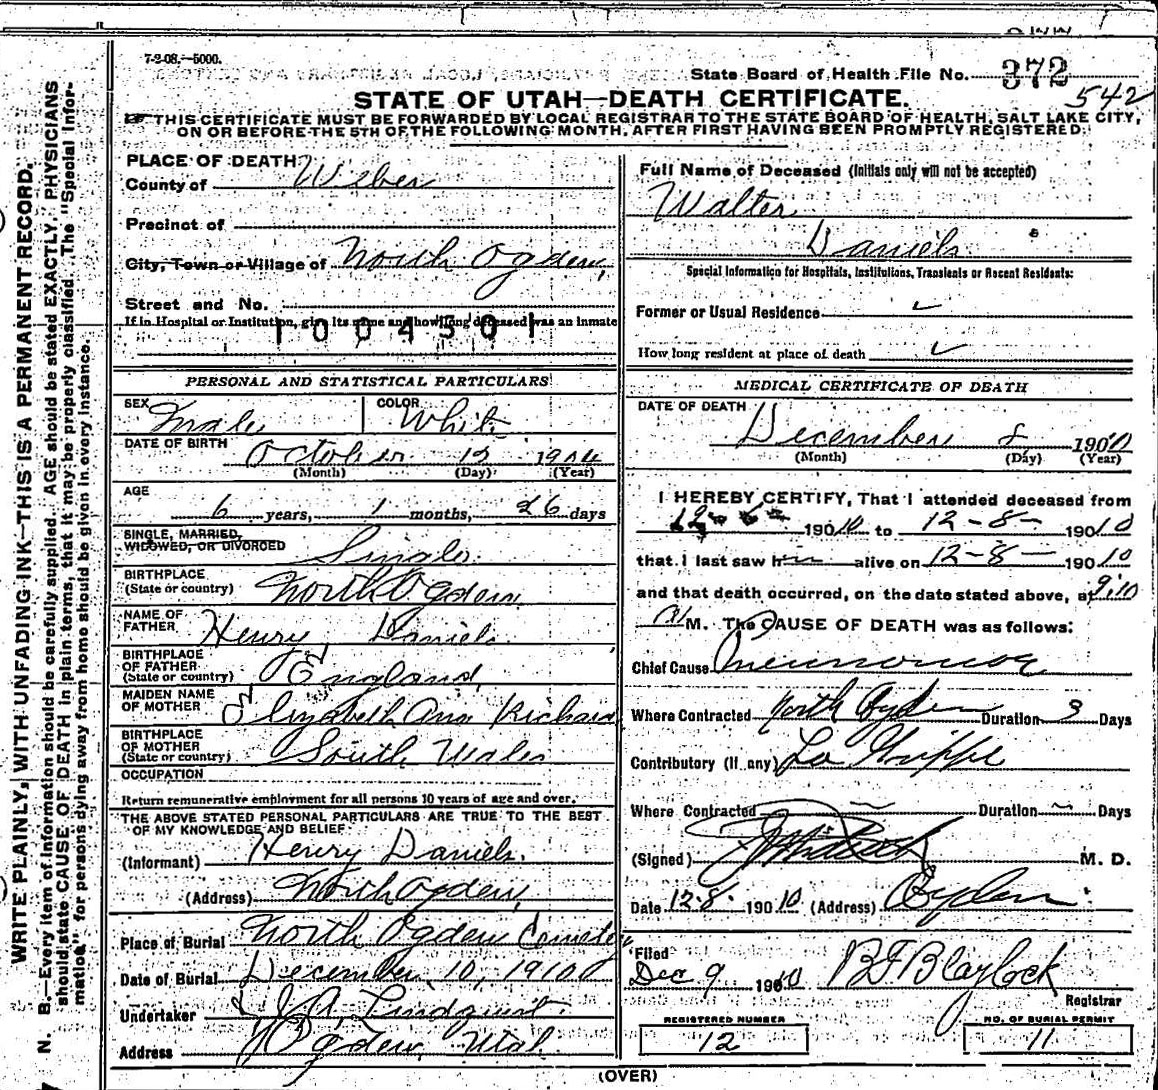 7-2-08.—5000.
State Board of Health File No. 372
542
STATE OF UTAH—DEATH CERTIFICATE.
THIS CERTIFICATE MUST BE FORWARDED BY LOCAL REGISTRAR TO THE STATE BOARD OF HEALTH, SALT LAKE CITY,
ON OR BEFORE THE 5TH OF THE FOLLOWING MONTH, AFTER FIRST HAVING BEEN PROMPTLY REGISTERED.
WRITE PLAINLY, WITH UNFADING INK—THIS IS A PERMANENT RECORD.
N. B.—Every item of information should be carefully supplied. AGE should be stated EXACTLY. PHYSICIANS
should state CAUSE OF DEATH in plain terms, that it may be properly classified. The "Special Infor-
mation" for persons dying away from home should be given in every instance.
PLACE OF DEATH
County of Weber
Precinct of
City, Town or Village of North Ogden,
Street and No.
If in Hospital or Institution, give its name and how long deceased was an inmate
1004501
PERSONAL AND STATISTICAL PARTICULARS
SEX Male COLOR White
DATE OF BIRTH October 12 1904
(Month) (Day) (Year)
AGE
6 years, 1 months, 26 days
SINGLE, MARRIED,
WIDOWED, OR DIVORCED Single
BIRTHPLACE
(State or country) North Ogden
NAME OF
FATHER Henry Daniels
BIRTHPLACE
OF FATHER
(State or country) England
MAIDEN NAME
OF MOTHER Elizabeth Ann Richard
BIRTHPLACE
OF MOTHER
(State or country) South Wales
OCCUPATION
Return remunerative employment for all persons 10 years of age and over.
THE ABOVE STATED PERSONAL PARTICULARS ARE TRUE TO THE BEST
OF MY KNOWLEDGE AND BELIEF
(Informant) Henry Daniels.
(Address) North Ogden,
Place of Burial North Ogden Cemetery
Date of Burial December 10, 1910
Undertaker J. A. Lindquist.
Address Ogden, Utah
Full Name of Deceased (Initials only will not be accepted)
Walter
Daniels
Special Information for Hospitals, Institutions, Transients or Recent Residents:
Former or Usual Residence ✓
How long resident at place of death ✓
MEDICAL CERTIFICATE OF DEATH
DATE OF DEATH
December 8 1910
(Month) (Day) (Year)
I HEREBY CERTIFY, That I attended deceased from
12- 1910 to 12-8- 1910
that I last saw him alive on 12-8- 1910
and that death occurred, on the date stated above, at 9:10
M. The CAUSE OF DEATH was as follows:
Chief Cause Pneumonia
Where Contracted North Ogden Duration Days
Contributory (If any) La Grippe
Where Contracted Duration Days
(Signed) M. D.
Date 12-8- 1910 (Address) Ogden
Filed
Dec 9 1910 B F Blaylock
Registrar
REGISTERED NUMBER
12
NO. OF BURIAL PERMIT
11
(OVER)